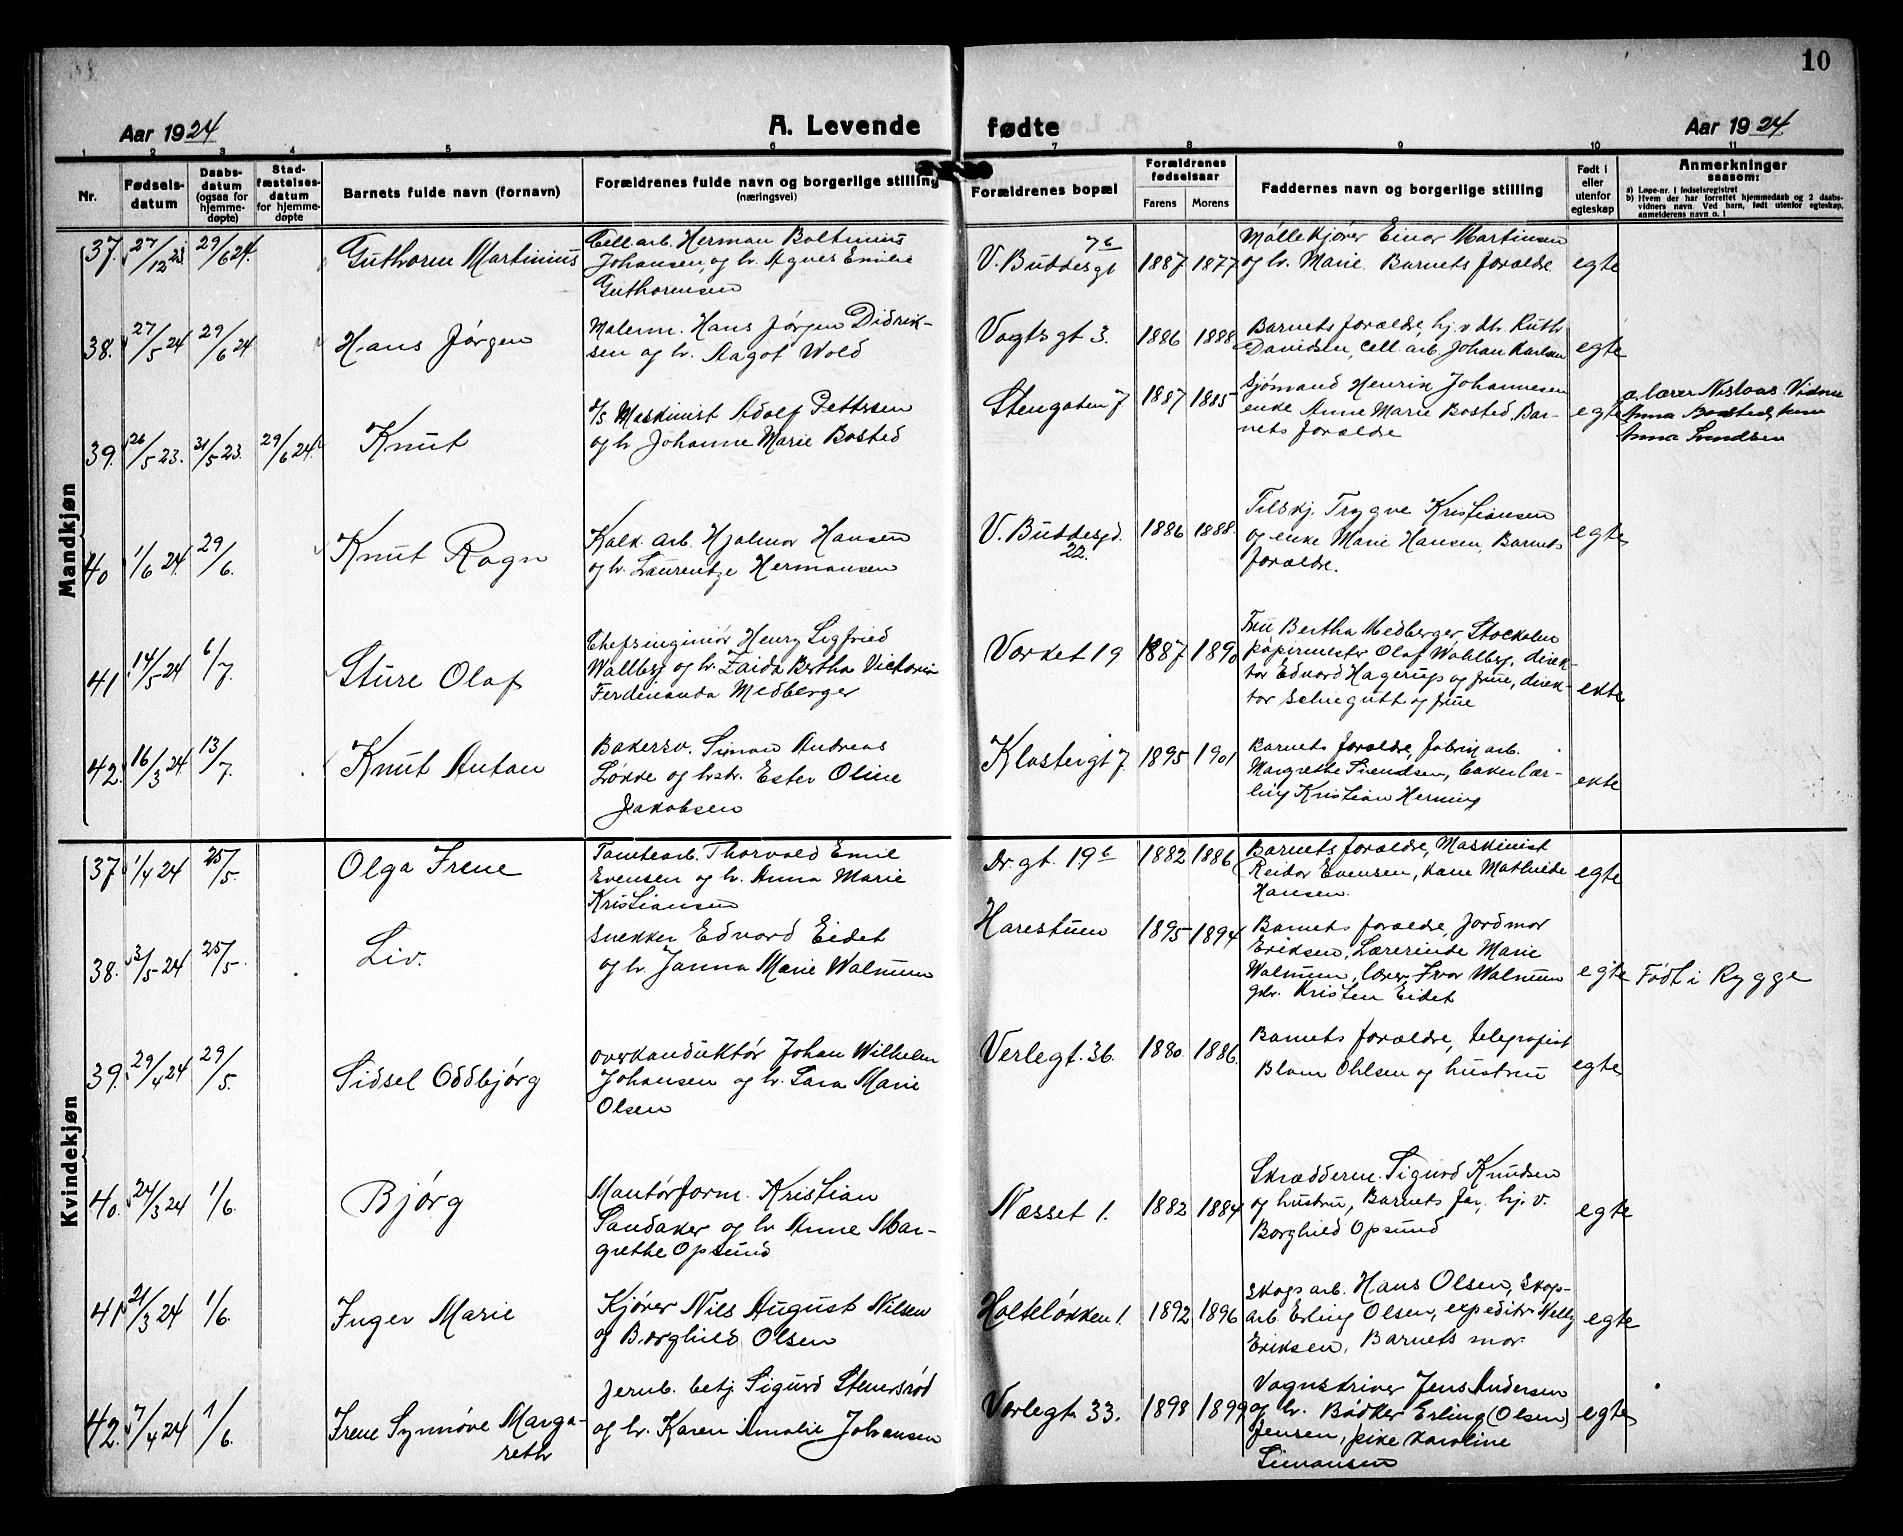 10
Aar 1924
A. Levende
fødte
Aar 1924
1 2 3 4 5 6 7 8 9 10 11
Nr.
Fødsels-
datum
Daabs-
datum
(ogsaa for
hjemme-
døpte)
Stad-
fæstelses-
datum
for hjemme-
døpte
Barnets fulde navn (fornavn)
Forældrenes fulde navn og borgerlige stilling
(næringsvei)
Forældrenes bopæl
Forældrenes
fødselsaar
Farens Morens
Faddernes navn og borgerlige stilling
Født i
eller
utenfor
egteskap
Anmerkninger
saasom:
a) Løpe-nr. i fødselsregistret
b) Hvem der har forrettet hjemmedaab og 2 daabs-
vidners navn. Ved barn, født utenfor egteskap,
anmelderens navn o. l
Mandkjøn
37. 27/12 23 29/6 24. Guthorm Martinius
Cell.arb. Herman Baltinius
Johansen, og h. Agnes Emilie
Guthormsen
V. Buddesgt 7b 1887 1877
Møllekjører Einar Martinsen
og h. Marie. Barnets forældre
egte
38. 27/5 24 29/6 24 Hans Jørgen
Malerm. Hans Jørgen Didrik-
sen og h. Aagot Wold
Vogts gt 3. 1886 1888
Barnets forældre, hj. v. dtr. Ruth
Davidsen, Cell. arb. Johan Karlsen
egte
39. 26/5 23. 31/5 23. 29/6 24. Knut
d/s Maskinist Adolf Pettersen
og h. Johanne Marie Bosted
Stengaten 7 1887 1885
Sjømand Henrik Johannesen
enke Anne Marie Bosted, Bar-
nets forældre
egte
a. lærer Nislaas
Anna Bosted,
Anna Svendsen
40 1/6 24. 29/6. Knut Ragn
Kalk. arb. Hjalmar Hansen
og h. Laurentze Hermansen
V. Buddesgd.
22. 1886 1888.
Tilskj. Trygve Kristiansen
og enke Marie Hansen, Barnets
forældre.
egte
41 14/5 24 6/7. Sture Olaf
Chefsinginiør Henry Sigfried
Wallberg og h. Zaida Bertha Victoria
Ferdinanda Medberger
Værket 19 1887 1890
Fru Bertha Medberger, Stockolm
papirmester Olaf Wahlberg, direk-
tør Edvard Hagerup og frue, direk-
tør og frue
ekte
42. 16/3 24. 13/7. Knut Anton
Bakersv. Simon Andreas
Løkke og hstr. Ester Oline
Jakobsen
Klostergt 7. 1895 1901
Barnets forældre, fabrik arb.
Margrethe Svendsen, bakerlær-
ling Kristian Herning
ekte
Kvindekjøn
37 1/4 24 25/5. Olga Irene
Tomtearb. Thorvald Emil
Evensen og h. Anna Marie
Kristiansen
Dr. gt. 19b 1882 1886
Barnets forældre, Maskinist
Reidar Evensen, kone Mathilde
Hansen.
egte
38. 3/5 24 25/5. Liv.
Snekker Edvard Eidet
og h. Janna Marie Walmum
Harestuen 1895 1894
Barnets forældre, Jordmor
Eriksen, Lærerinde Marie
Walmum, lærer Ivar Walmum
gbr. Kristen Eidet
egte Født i Rygge
39. 29/4 24 29/5. Sidsel Oddbjørg
Overkonduktør Johan Wilhelm
Johansen og h. Sara Marie
Olsen
Verlegt. 36. 1880. 1886.
Barnets forældre, telegrafist
Blom Ohlsen og hustru
egte
40. 24/3 24 1/6. Bjørg
Montørform. Kristian
Sandaker og h. Anne Mar-
grethe Opsund
Næsset 1. 1882 1884
Skrædderm. Sigurd Knudsen
og hustru, Barnets far, hj. v.
Borghild Opsund
egte
41 21/3 24 1/6. Inger Marie
Kjører Nils August Nilsen
og Borghild Olsen
Holteløkken 1. 1892 1896
Skogs arb. Hans Olsen, Skog-
arb. Erling Olsen, expeditr. Helly
Eriksen, Barnets mor.
egte
42. 7/4 24 1/6. Irene Synnøve Marga-
reth
Jernb. betj. Sigurd Stensrød
og h. Karen Amalie Johansen
Værlegt. 33. 1898 1899
Vognskriver Jens Andersen
og h. Bødker Erling (Olsen)
Jensen, pike Karoline
Simonsen
egte